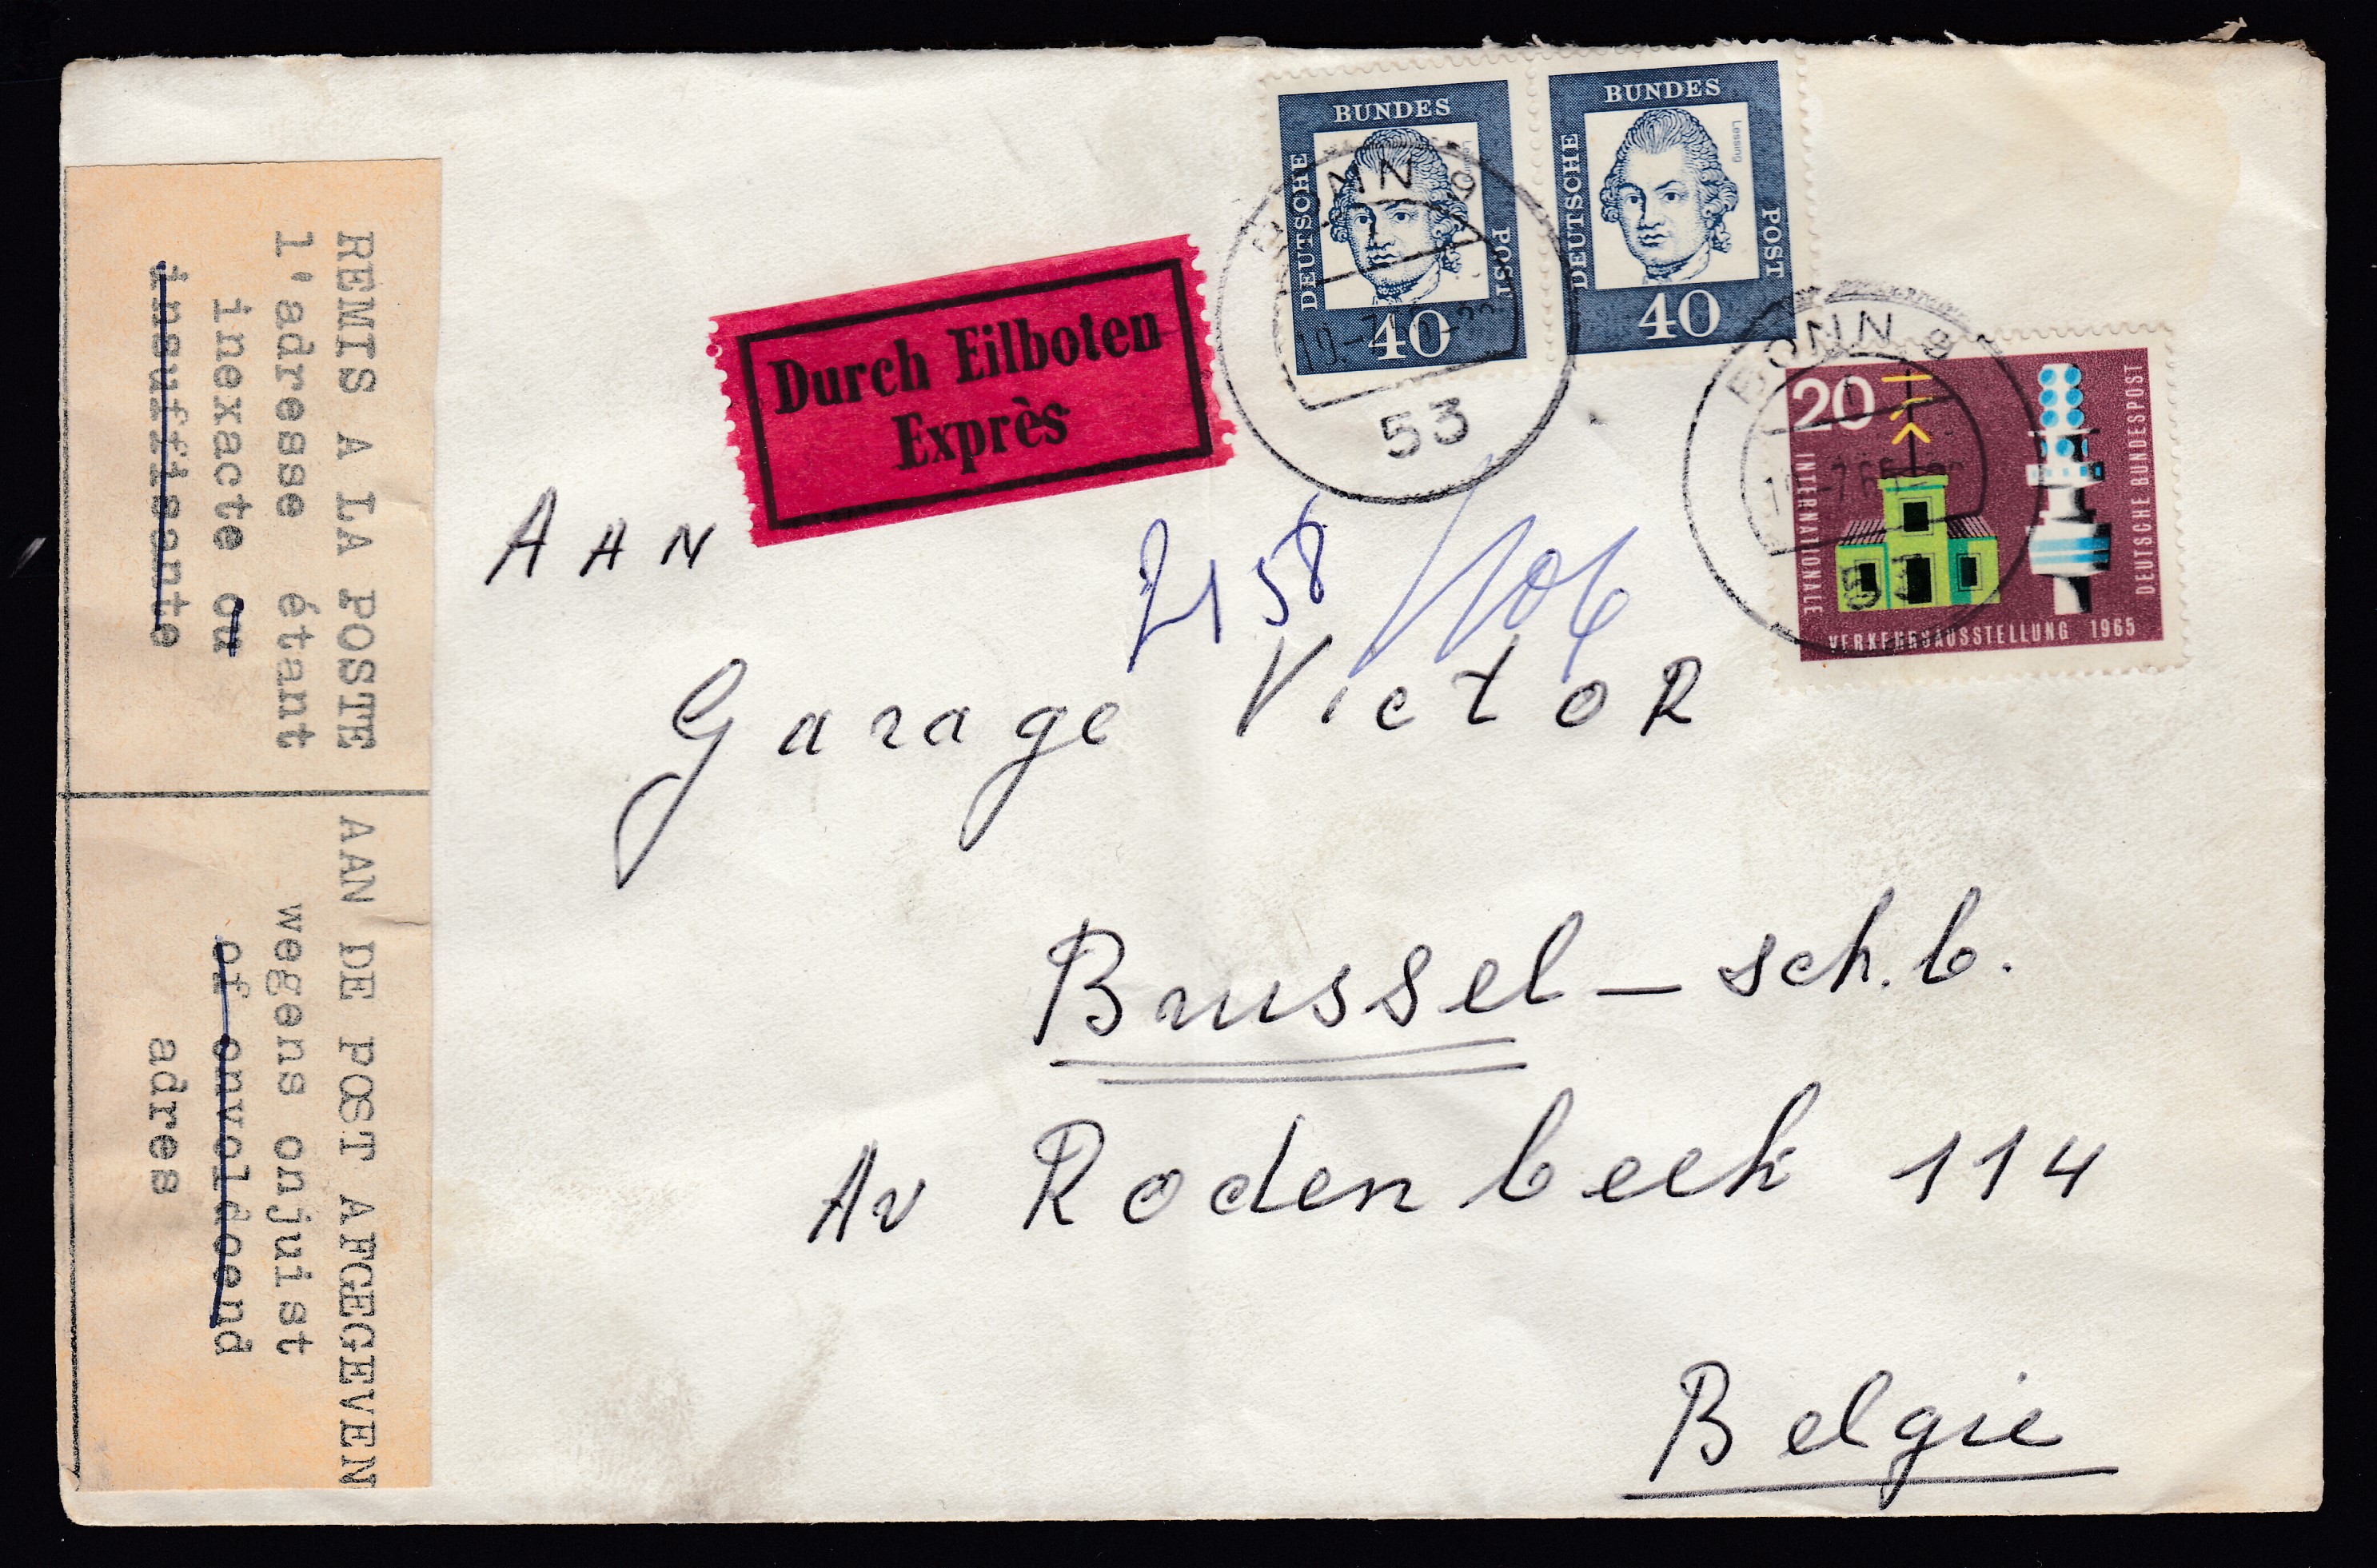 BUNDES
DEUTSCHE
POST
40
BUNDES
DEUTSCHE
POST
Lessing
40
BONN 9
53
BONN 9
53
20
INTERNATIONALE
VERKEHRSAUSSTELLUNG 1965
DEUTSCHE BUNDESPOST
Durch Eilboten
Exprès
AAN
2158
Garage Victor
Brussel - sch. b.
Av Rodenbeek 114
Belgie
REMIS A LA POSTE
l'adresse étant
inexacte ou
insuffisante
AAN DE POST AFGEGEVEN
wegens onjuist
of onvoldoend
adres